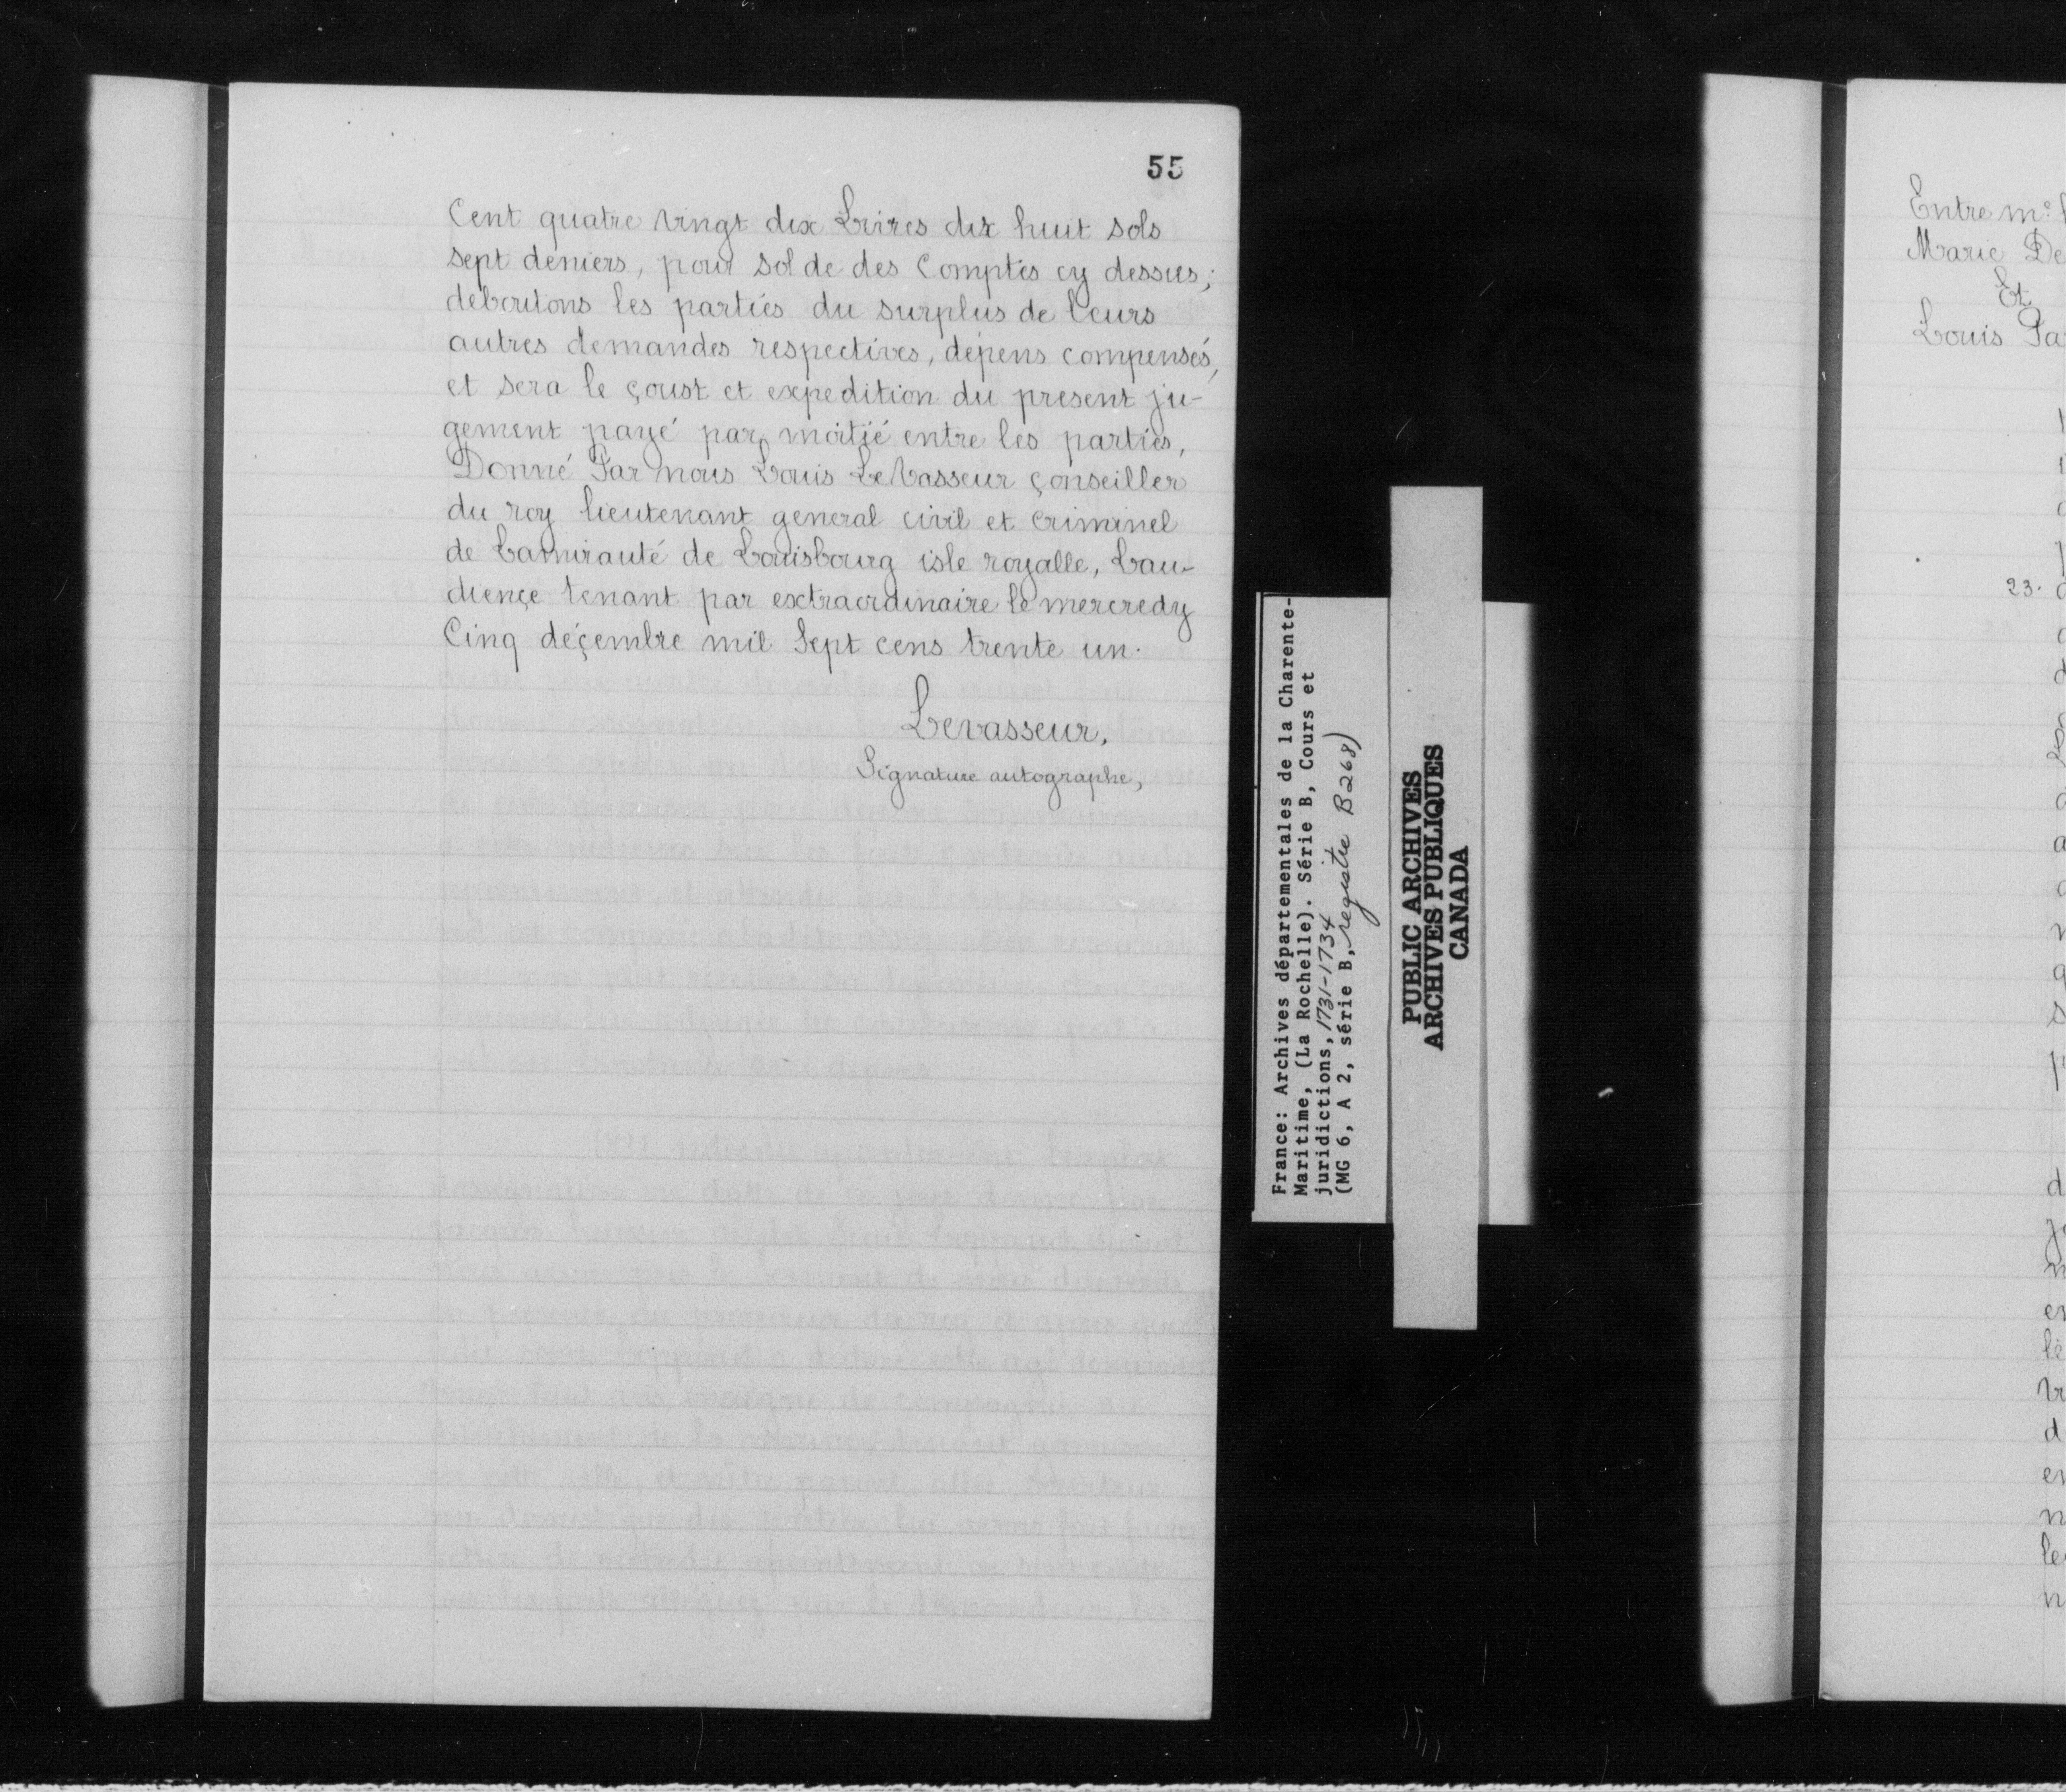 55
Cent quatre vingt dix Livres dix huit sols
sept deniers, pour solde des Comptes cy dessus;
deboutons les parties du surplus de leurs
autres demandes respectives, dépens compensés,
et sera le çoust et expedition du present ju-
gement payé par moitié entre les parties,
Donné Par nous Louis LeVasseur çonseiller
du roy lieutenant general civil et Criminel
de Lamirauté de Louisbourg isle royalle, Lau-
diençe tenant par extraordinaire le mercredy
Cinq déçembre mil Sept cens trente un.
Levasseur,
Signature autographe,
France: Archives départementales de la Charente-
Maritime, (La Rochelle). Série B, Cours et
juridictions, 1731-1734
(MG 6, A 2, série B, registre B268)
PUBLIC ARCHIVES
ARCHIVES PUBLIQUES
CANADA
Entre
Marie De
Et
Louis
23.